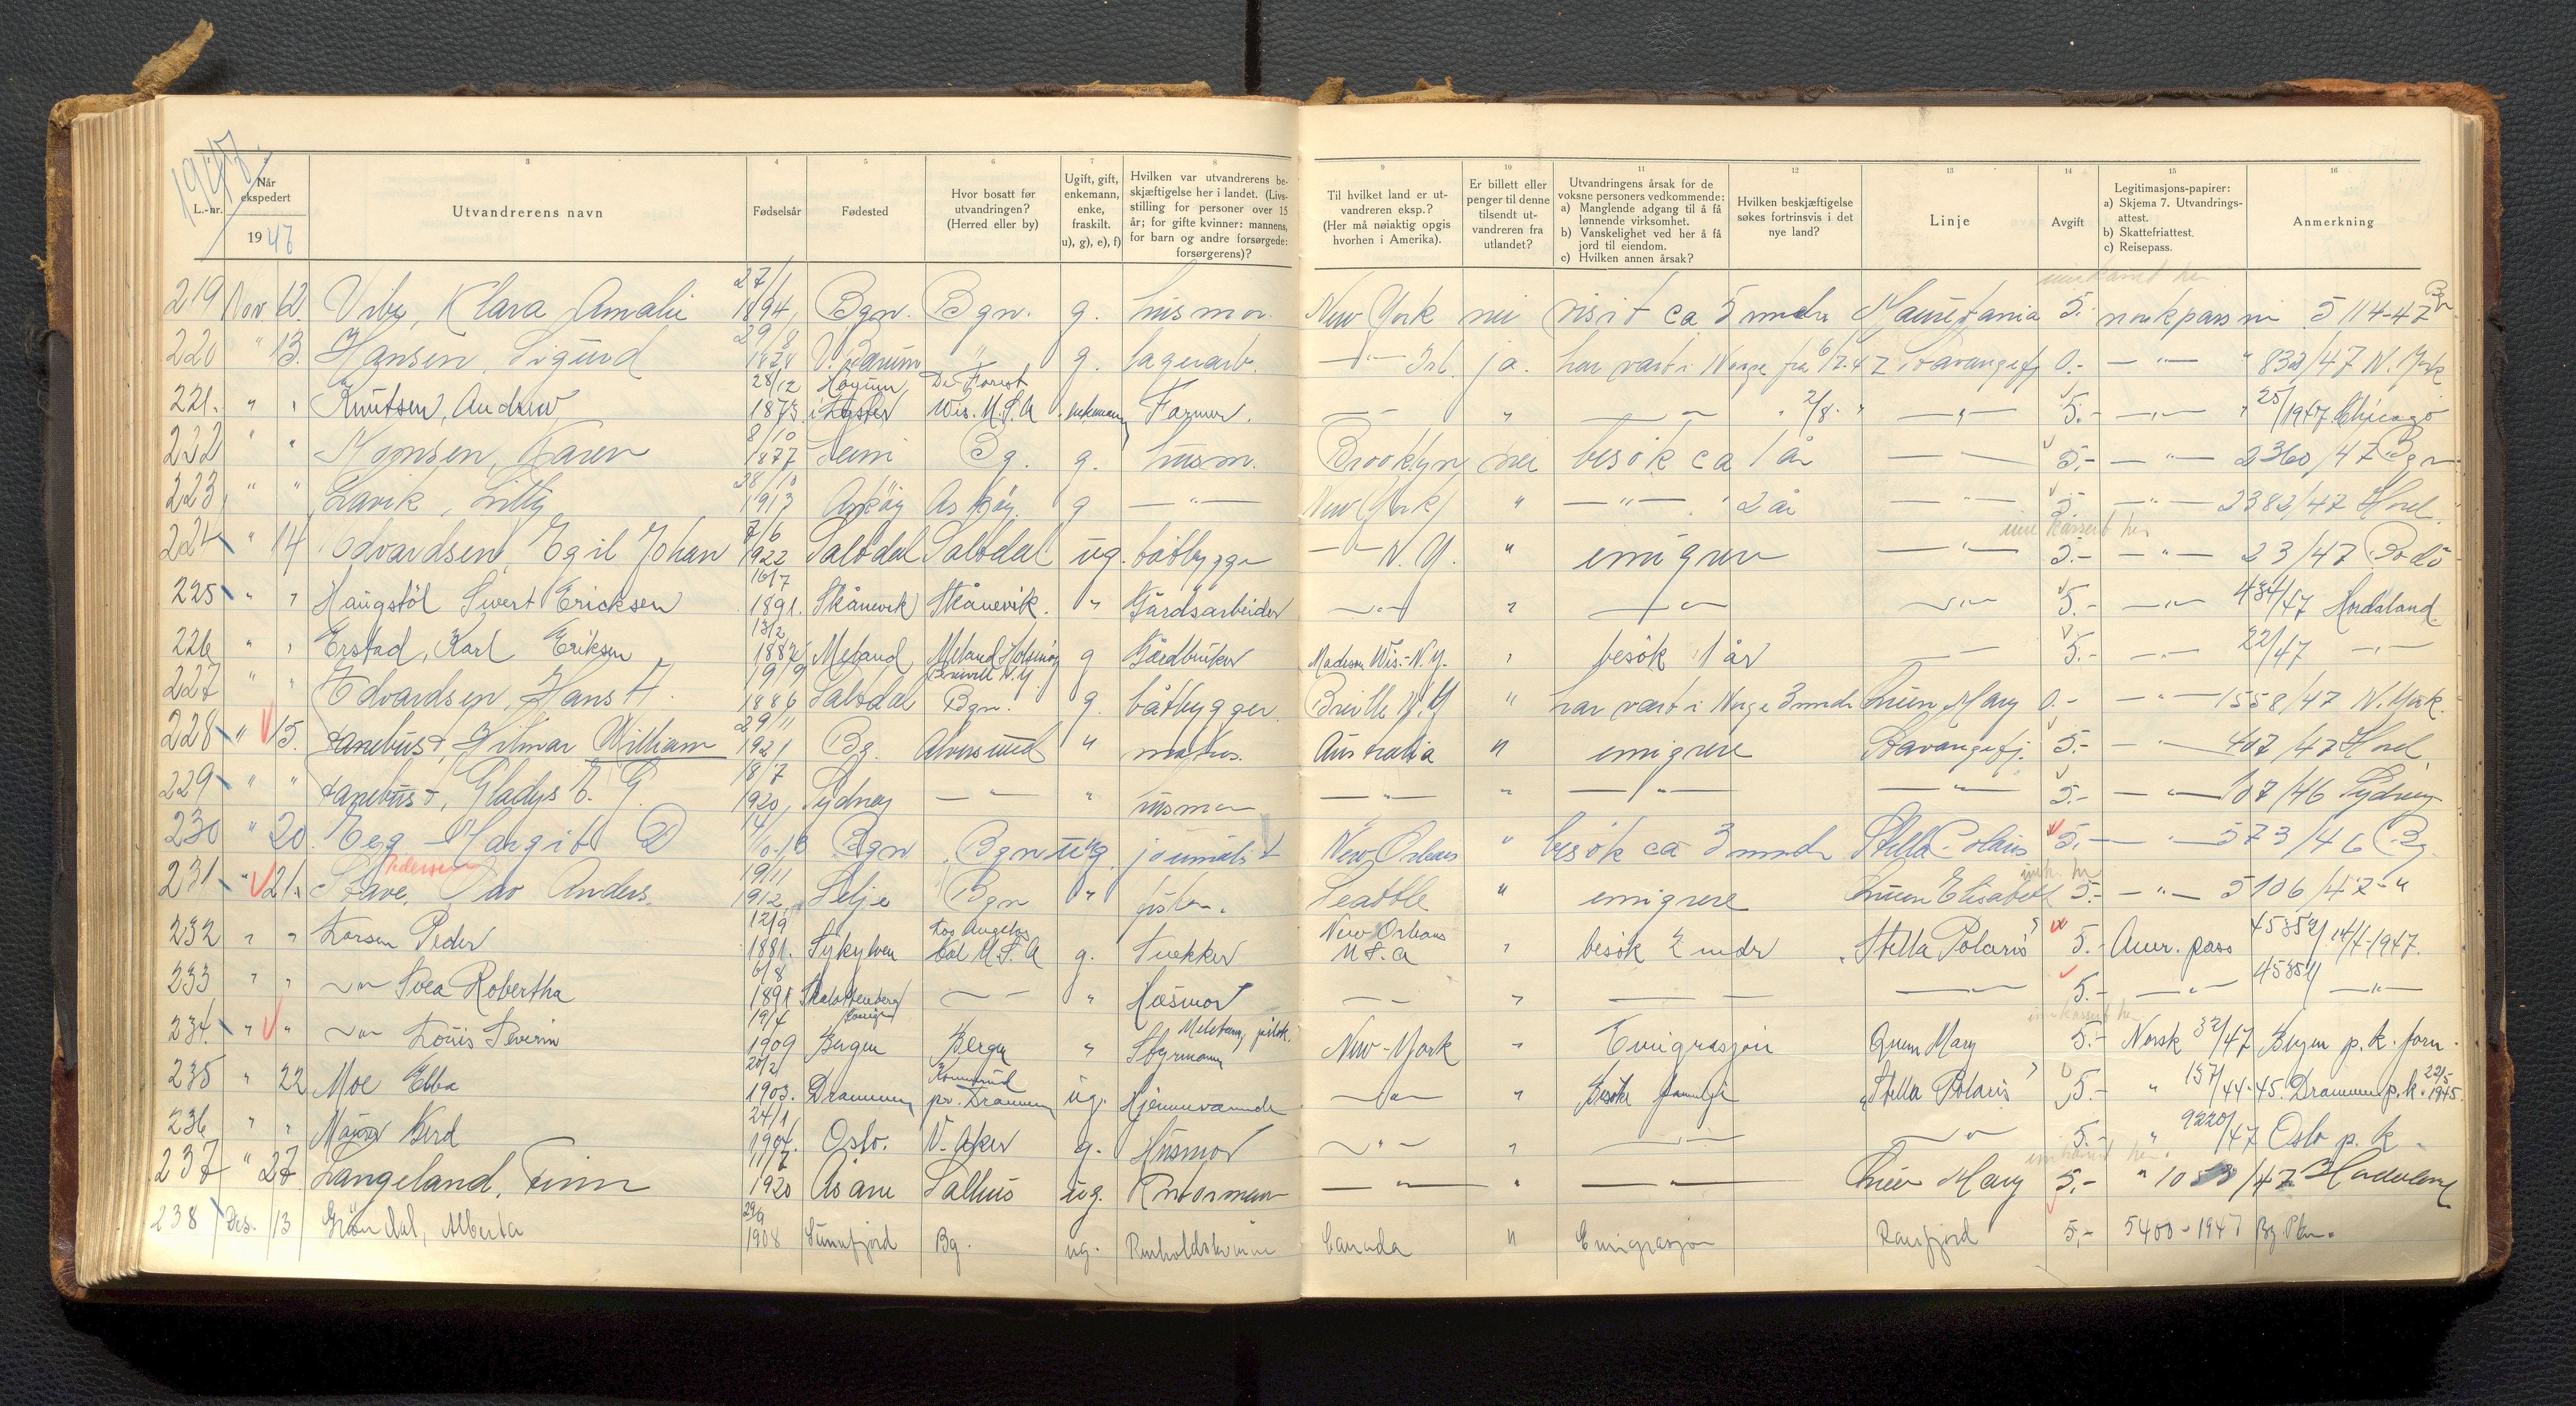 1947.
L.-nr.
2
Når ekspedert
1947
3
Utvandrerens navn
4
Fødselsår
5
Fødested
6
Hvor bosatt før utvandringen? (Herred eller by)
7
Ugift, gift, enkemann, enke, fraskilt. u), g), e), f)
8
Hvilken var utvandrerens beskjæftigelse her i landet. (Livsstilling for personer over 15 år; for gifte kvinner: mannens, for barn og andre forsørgede: forsørgerens)?
9
Til hvilket land er utvandreren eksp.? (Her må nøiaktig opgis hvorhen i Amerika).
10
Er billett eller penger til denne tilsendt utvandreren fra utlandet?
11
Utvandringens årsak for de voksne personers vedkommende:
a) Manglende adgang til å få lønnende virksomhet.
b) Vanskelighet ved her å få jord til eiendom.
c) Hvilken annen årsak?
12
Hvilken beskjæftigelse søkes fortrinsvis i det nye land?
13
Linje
14
Avgift
15
Legitimasjons-papirer:
a) Skjema 7. Utvandringsattest.
b) Skattefriattest.
c) Reisepass.
16
Anmerkning
219 Nov. 12. Vibe, Klara Amalie 27/1 1894 Bgn. Bgn. g. husmor. New York nei visit ca 5 mndr Mauretania 5.- norsk pass nr 5114-47 Bgn
220 " 13. Hansen, Sigurd 29/8 1878 V. Bærum " g. lagerarb. —"— ja. har vært i Norge fra 6/7.47 Stavangerfj 0.- —"— " 832/47 N. York
221. " " Knutsen, Andrew 28/12 1873 i Lyster De Forest Wis. U.S.A enkemann Farmer. —"— " —"— " 2/8. " —"— 5.- —"— " 25/1947 Chicago
222 " " Monsen, Karen 8/10 1877 Bg. g. husm. Brooklyn nei besök ca 1 år —"— 5.- —"— 2360/47 Bgn
223, " " Lavik, Lilly 28/10 1913 Asköy Asköy. g —"— New York " —"— 2 år —"— 5.- —"— 2382/47 Hord.
224 " 14 Edvardsen, Egil Johan 7/6 1922 Saltdal Saltdal ug. båtbygger —"— N.Y. " emigrere —"— 5.- —"— 23/47 Bodö
225 " " Haugstöl Sivert Ericksen 16/7 1891. Skånevik Skånevik. " Gårdsarbeider —"— " —"— —"— 5.- —"— 434/47 Hordaland
226 " " Erstad, Karl Eriksen 13/2 1882 Meland Meland Holsnöy g Gårdbruker Madison Wis.-N.Y. " besök 1 år —"— 5.- —"— 22/47 —"—
227 " " Edvardsen, Hans A. 19/9 1886 Saltdal Bgn. g. båtbygger N.Y " har vært i Norge 3 mndr Queen Mary 0.- —"— 1558/47 N. York.
228 " 15. Hilmar William 29/11 1921 Bg. Alversund " matros. Australia " emigrere Stavangerfj. 5.- —"— 407/47 Hord
229 " " Gladys E. G. 18/7 1920, Sydney —"— " husmor —"— " —"— —"— 5.- —"— 107/46 Sydney
230 " 20. Eeg Margit Bgn Bgn ug. journalist New Orleans " besök ca 3 mndr Stella Polaris 5.- —"— 573/46 Bg.
231 " 21. Stave, Pedersen Olav Anders. 19/11 1912. Selje Bgn " fisker. Seattle " emigrere Queen Elisabeth 5.- —"— 5106/47 - "
232 " " Larsen Peder 12/9 1881. Sykylven Los Angelos Cal U.S.A g. Snekker New Orleans U.S.A " besök 2 mdr "Stella Polaris" 5.- Amr. pass 45352/ 14/7-1947.
233 " " —"— Svea Robertha 6/8 —"— " Husmor —"— " —"— —"— 5.- —"— 45351/ —"—
234. " " —"— Louis Severin 19/4 1909 Bergen Bergen " Styrmann New-York " Emigrasjon Queen Mary 5.- Norsk 32/47 Bergen p.k. forn.
235 " 22 Moe Ebba 20/2 1903. Drammen pr. Drammen ug. Hjemmeværende —"— " Besöke familje "Stella Polaris" 5.- " 157/44-45. Drammen p.k. 22/5 1945.
236 " " Gerd 24/1 1904. Oslo. V. Aker g. Husmor —"— " —"— —"— 5.- " 9220/47 Oslo p.k.
237 " 27. Langeland, Finn 11/7 1920 Åsane Salhus ug. Kontormann —"— " —"— Queen Mary 5,- " /47 Hordaland
238 Des. 13 Gröndal, Alberta 29/9 1908 Sunnfjord Bg. ug. Canada " Emigrasjon Ranfjord 5,- 5400-1947 Bg. Pkm.